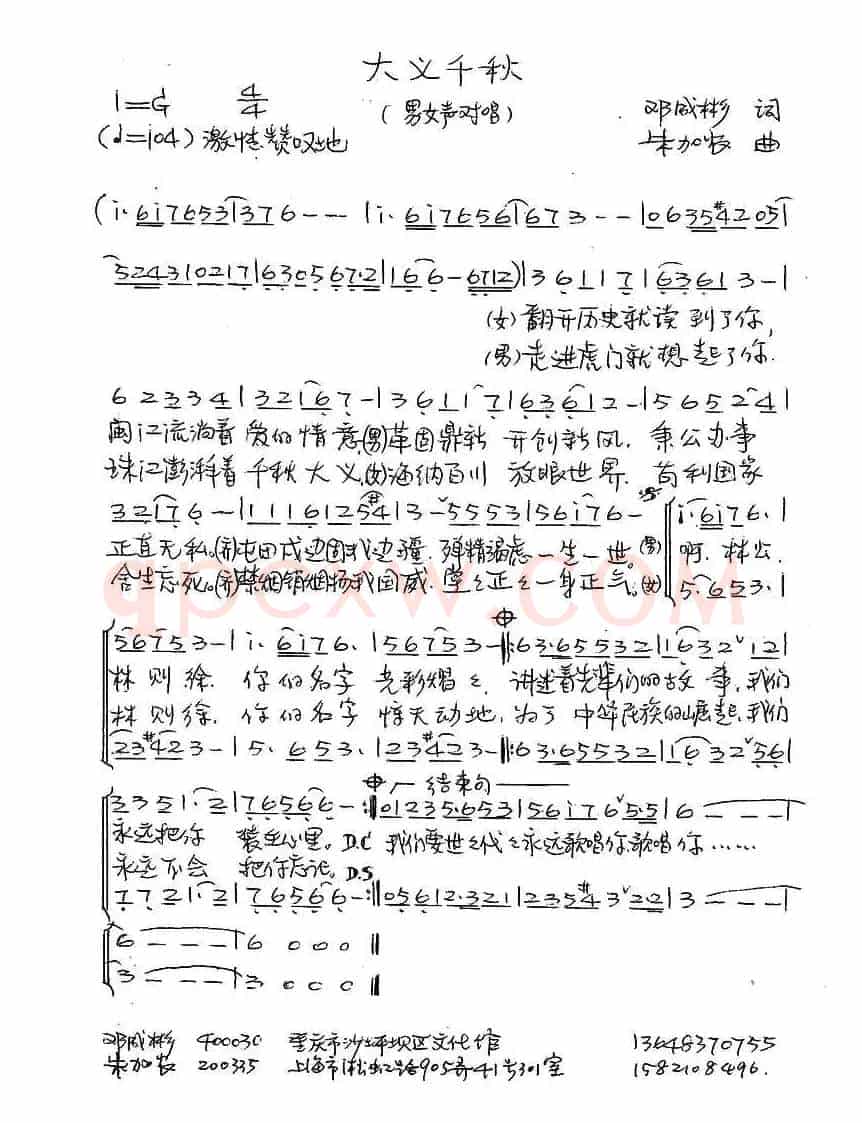 大义千秋
1=G 4/4 （男女声对唱） 邓成彬 词
(♩=104) 激情赞叹地 朱加农 曲
(i· 6i7653|376---|i· 6i7656|673--|0635#4205|
5243|0217|630567·2|166-6712)|36117|63613-|
(女)翻开历史就读到了你,
(男)走进虎门就想起了你.
62334|32167-|36117|63612-|565241|
闽江流淌着 爱的情意,(男)革固鼎新 开创新风. 秉公办事
珠江澎湃着 千秋大义,(女)海纳百川 放眼世界. 苟利国家
32176-|1116125#4|3-5553|56i76-|i·6i76·|
正直无私.(齐)屯田戍边固我边疆. 殚精竭虑一生一世.(男) 啊. 林公.
舍生忘死.(齐)禁烟销烟扬我国威. 堂堂正正一身正气。(女)
5·653·|
56753-|i·6i76·|56753-|:63·655532|1632 12|
林则徐. 你的名字 光彩熠熠. 讲述着先辈们的故事,我们
林则徐. 你的名字 惊天动地,为了中华民族的崛起,我们
23#423-|5·653·|23#423-|:63·655532|1632 56|
结束句
3351·2|76566-:|01235·653|56i76 5·5|6---|
永远把你 装在心里。D.C 我们要世世代代永远歌唱你歌唱你……
永远不会 把你忘记。D.S
7721·2|76566-:|05612·321|235#43 2·2|3---|
6---|6000‖
3---|3000‖
邓成彬 400030 重庆市沙坪坝区文化馆 13648370755
朱加农 200335 上海市淞虹路905弄41号301室 1582108496.
qpcxw.COM